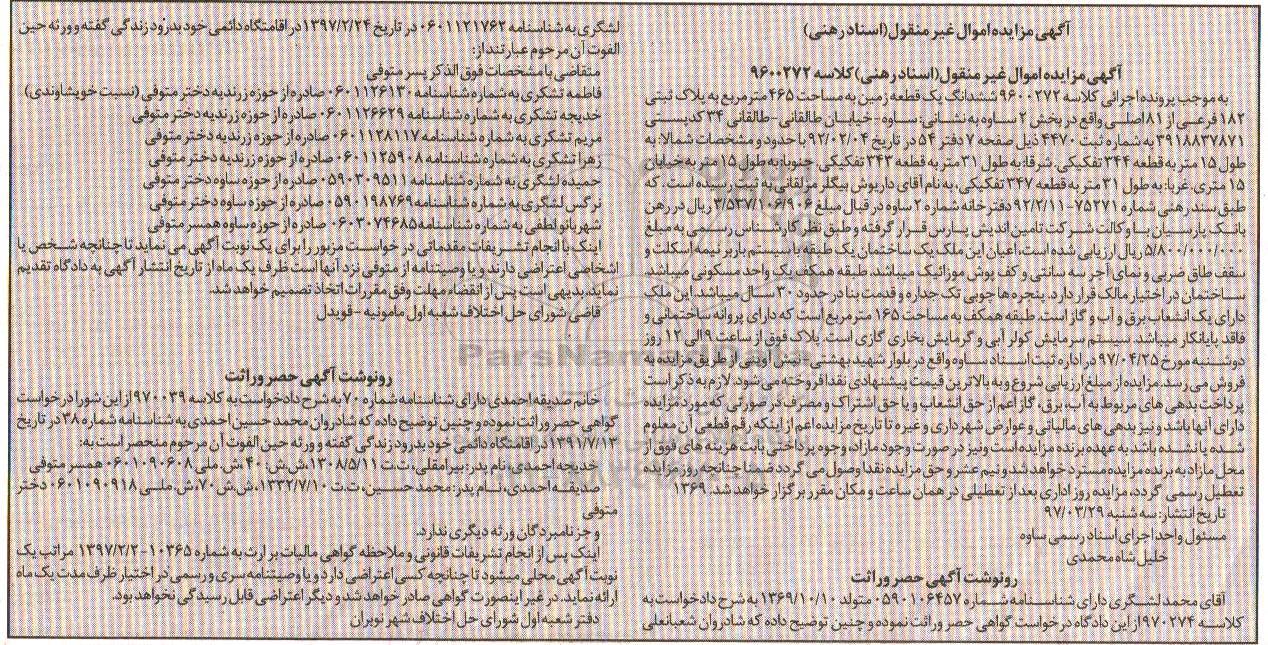 آگهی مزایده اموال غیر منقول (اسناد رهنی)
آگهی مزایده اموال غیر منقول (اسناد رهنی) کلاسه ۹۶۰۰۲۷۲
به موجب پرونده اجرائی کلاسه ۹۶۰۰۲۷۲ ششدانگ یک قطعه زمین به مساحت ۴۶۵ مترمربع به پلاک ثبتی
۱۸۲ فرعی از ۸۱ اصلی واقع در بخش ۲ ساوه به نشانی: ساوه - خیابان طالقانی - طالقانی ۳۴ کدپستی
۳۹۱۸۸۳۷۸۷۱ به شماره ثبت ۴۴۷۰ ذیل صفحه ۷ دفتر ۵۴ در تاریخ ۹۲/۰۲/۰۴ با حدود و مشخصات شمالا: به
طول ۱۵ متر به قطعه ۳۴۴ تفکیکی. شرقا: به طول ۳۱ متر به قطعه ۳۴۳ تفکیکی. جنوبا: به طول ۱۵ متر به خیابان
۱۵ متری. غربا: به طول ۳۱ متر به قطعه ۳۴۷ تفکیکی، به نام آقای داریوش بیگلر مزلقانی به ثبت رسیده است. که
طبق سند رهنی شماره ۷۵۲۷۱-۹۲/۲/۱۱ دفترخانه شماره ۲ ساوه در قبال مبلغ ۳/۵۳۷/۱۰۶/۹۰۶ ریال در رهن
بانک پارسیان با وکالت شرکت تامین اندیش پارس قرار گرفته و طبق نظر کارشناس رسمی به مبلغ
۵/۸۰۰/۰۰۰/۰۰۰ ریال ارزیابی شده است، اعیان این ملک یک ساختمان یک طبقه با سیستم باربر نیمه اسکلت و
سقف طاق ضربی و نمای آجر سه سانتی و کف پوش موزائیک میباشد. طبقه همکف یک واحد مسکونی میباشد.
ساختمان در اختیار مالک قرار دارد. پنجره ها چوبی تک جداره و قدمت بنا در حدود ۳۰ سال میباشد. این ملک
دارای یک انشعاب برق و آب و گاز است. طبقه همکف به مساحت ۱۶۵ متر مربع است که دارای پروانه ساختمانی و
فاقد پایانکار میباشد. سیستم سرمایش کولر آبی و گرمایش بخاری گازی است. پلاک فوق از ساعت ۹ الی ۱۲ روز
دوشنبه مورخ ۹۷/۰۴/۲۵ در اداره ثبت اسناد ساوه واقع در بلوار شهید بهشتی - نبش اویسی از طریق مزایده به
فروش می رسد. مزایده از مبلغ ارزیابی شروع و به بالاترین قیمت پیشنهادی نقدا فروخته می شود. لازم به ذکر است
پرداخت بدهی های مربوط به آب، برق، گاز اعم از حق انشعاب و یا حق اشتراک و مصرف در صورتی که مورد مزایده
دارای آنها باشد و نیز بدهی های مالیاتی و عوارض شهرداری و غیره تا تاریخ مزایده اعم از اینکه رقم قطعی آن معلوم
شده یا نشده باشد به عهده برنده مزایده است و نیز در صورت وجود مازاد، وجوه پرداختی بابت هزینه های فوق از
محل مازاد به برنده مزایده مسترد خواهد شد و نیم عشر و حق مزایده نقدا وصول می گردد ضمنا چنانچه روز مزایده
تعطیل رسمی گردد، مزایده روز اداری بعد از تعطیلی در همان ساعت و مکان مقرر برگزار خواهد شد. ۱۳۶۹
تاریخ انتشار: سه شنبه ۹۷/۰۳/۲۹
مسئول واحد اجرای اسناد رسمی ساوه
خلیل شاه محمدی
رونوشت آگهی حصر وراثت
آقای محمد لشگری دارای شناسنامه شماره ۰۵۹۰۱۰۶۴۵۷ متولد ۱۳۶۹/۱۰/۱۰ به شرح دادخواست به
کلاسه ۹۷۰۲۷۴ از این دادگاه درخواست گواهی حصر وراثت نموده و چنین توضیح داده که شادروان شعبانعلی
لشگری به شناسنامه ۰۶۰۱۱۲۱۷۶۲ در تاریخ ۱۳۹۷/۲/۲۴ در اقامتگاه دائمی خود بدرود زندگی گفته و ورثه حین
الفوت آن مرحوم عبارتنداز:
متقاضی با مشخصات فوق الذکر پسر متوفی
فاطمه تشکری به شماره شناسنامه ۰۶۰۱۱۲۶۱۳۰ صادره از حوزه زرندیه دختر متوفی (نسبت خویشاوندی)
خدیجه تشکری به شماره شناسنامه ۰۶۰۱۱۲۶۶۲۹ صادره از حوزه زرندیه دختر متوفی
مریم تشکری به شماره شناسنامه ۰۶۰۱۱۲۸۱۱۷ صادره از حوزه زرندیه دختر متوفی
زهرا تشکری به شماره شناسنامه ۰۶۰۱۱۲۵۹۰۸ صادره از حوزه زرندیه دختر متوفی
حمیده لشگری به شماره شناسنامه ۰۵۹۰۳۰۹۵۱۱ صادره از حوزه ساوه دختر متوفی
نرگس لشگری به شماره شناسنامه ۰۵۹۰۱۹۸۷۶۹ صادره از حوزه ساوه دختر متوفی
شهربانو لطفی به شماره شناسنامه ۰۶۰۳۰۷۴۶۸۵ صادره از حوزه ساوه همسر متوفی
اینک با انجام تشریفات مقدماتی درخواست مزبور را برای یک نوبت آگهی می نماید تا چنانچه شخص یا
اشخاصی اعتراضی دارند و یا وصیتنامه از متوفی نزد آنها است ظرف یک ماه از تاریخ انتشار آگهی به دادگاه تقدیم
نماید. بدیهی است پس از انقضاء مهلت وفق مقررات اتخاذ تصمیم خواهد شد.
قاضی شورای حل اختلاف شعبه اول مامونیه - قویدل
رونوشت آگهی حصر وراثت
خانم صدیقه احمدی دارای شناسنامه شماره ۷۰ به شرح دادخواست به کلاسه ۹۷۰۰۳۹ از این شورا درخواست
گواهی حصر وراثت نموده و چنین توضیح داده که شادروان محمد حسین احمدی به شناسنامه شماره ۳۸ در تاریخ
۱۳۹۱/۷/۱۳ در اقامتگاه دائمی خود بدرود زندگی گفته و ورثه حین الفوت آن مرحوم منحصر است به:
خدیجه احمدی، نام پدر: بیرامقلی، ت.ت ۱۳۰۸/۵/۱۱، ش.ش: ۴۰، ش. ملی ۰۶۰۱۰۹۰۶۰۸ همسر متوفی
صدیقه احمدی، نام پدر: محمد حسین، ت.ت ۱۳۳۲/۷/۱۰، ش.ش ۷۰، ش. ملی ۰۶۰۱۰۹۰۹۱۸ دختر
متوفی
و جز نامبردگان ورثه دیگری ندارد.
اینک پس از انجام تشریفات قانونی و ملاحظه گواهی مالیات بر ارث به شماره ۱۰۳۶۵-۱۳۹۷/۲/۲ مراتب یک
نوبت آگهی محلی میشود تا چنانچه کسی اعتراضی دارد و یا وصیتنامه سری و رسمی در اختیار ظرف مدت یک ماه
ارائه نماید. در غیر اینصورت گواهی صادر خواهد شد و دیگر اعتراضی قابل رسیدگی نخواهد بود.
دفتر شعبه اول شورای حل اختلاف شهر نوبران